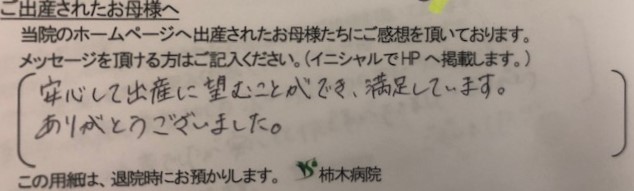 ご出産されたお母様へ
当院のホームページへ出産されたお母様たちにご感想を頂いております。
メッセージを頂ける方はご記入ください。(イニシャルでHPへ掲載します。)
安心して出産に望むことができ、満足しています。
ありがとうございました。
この用紙は、退院時にお預かりします。 柿木病院